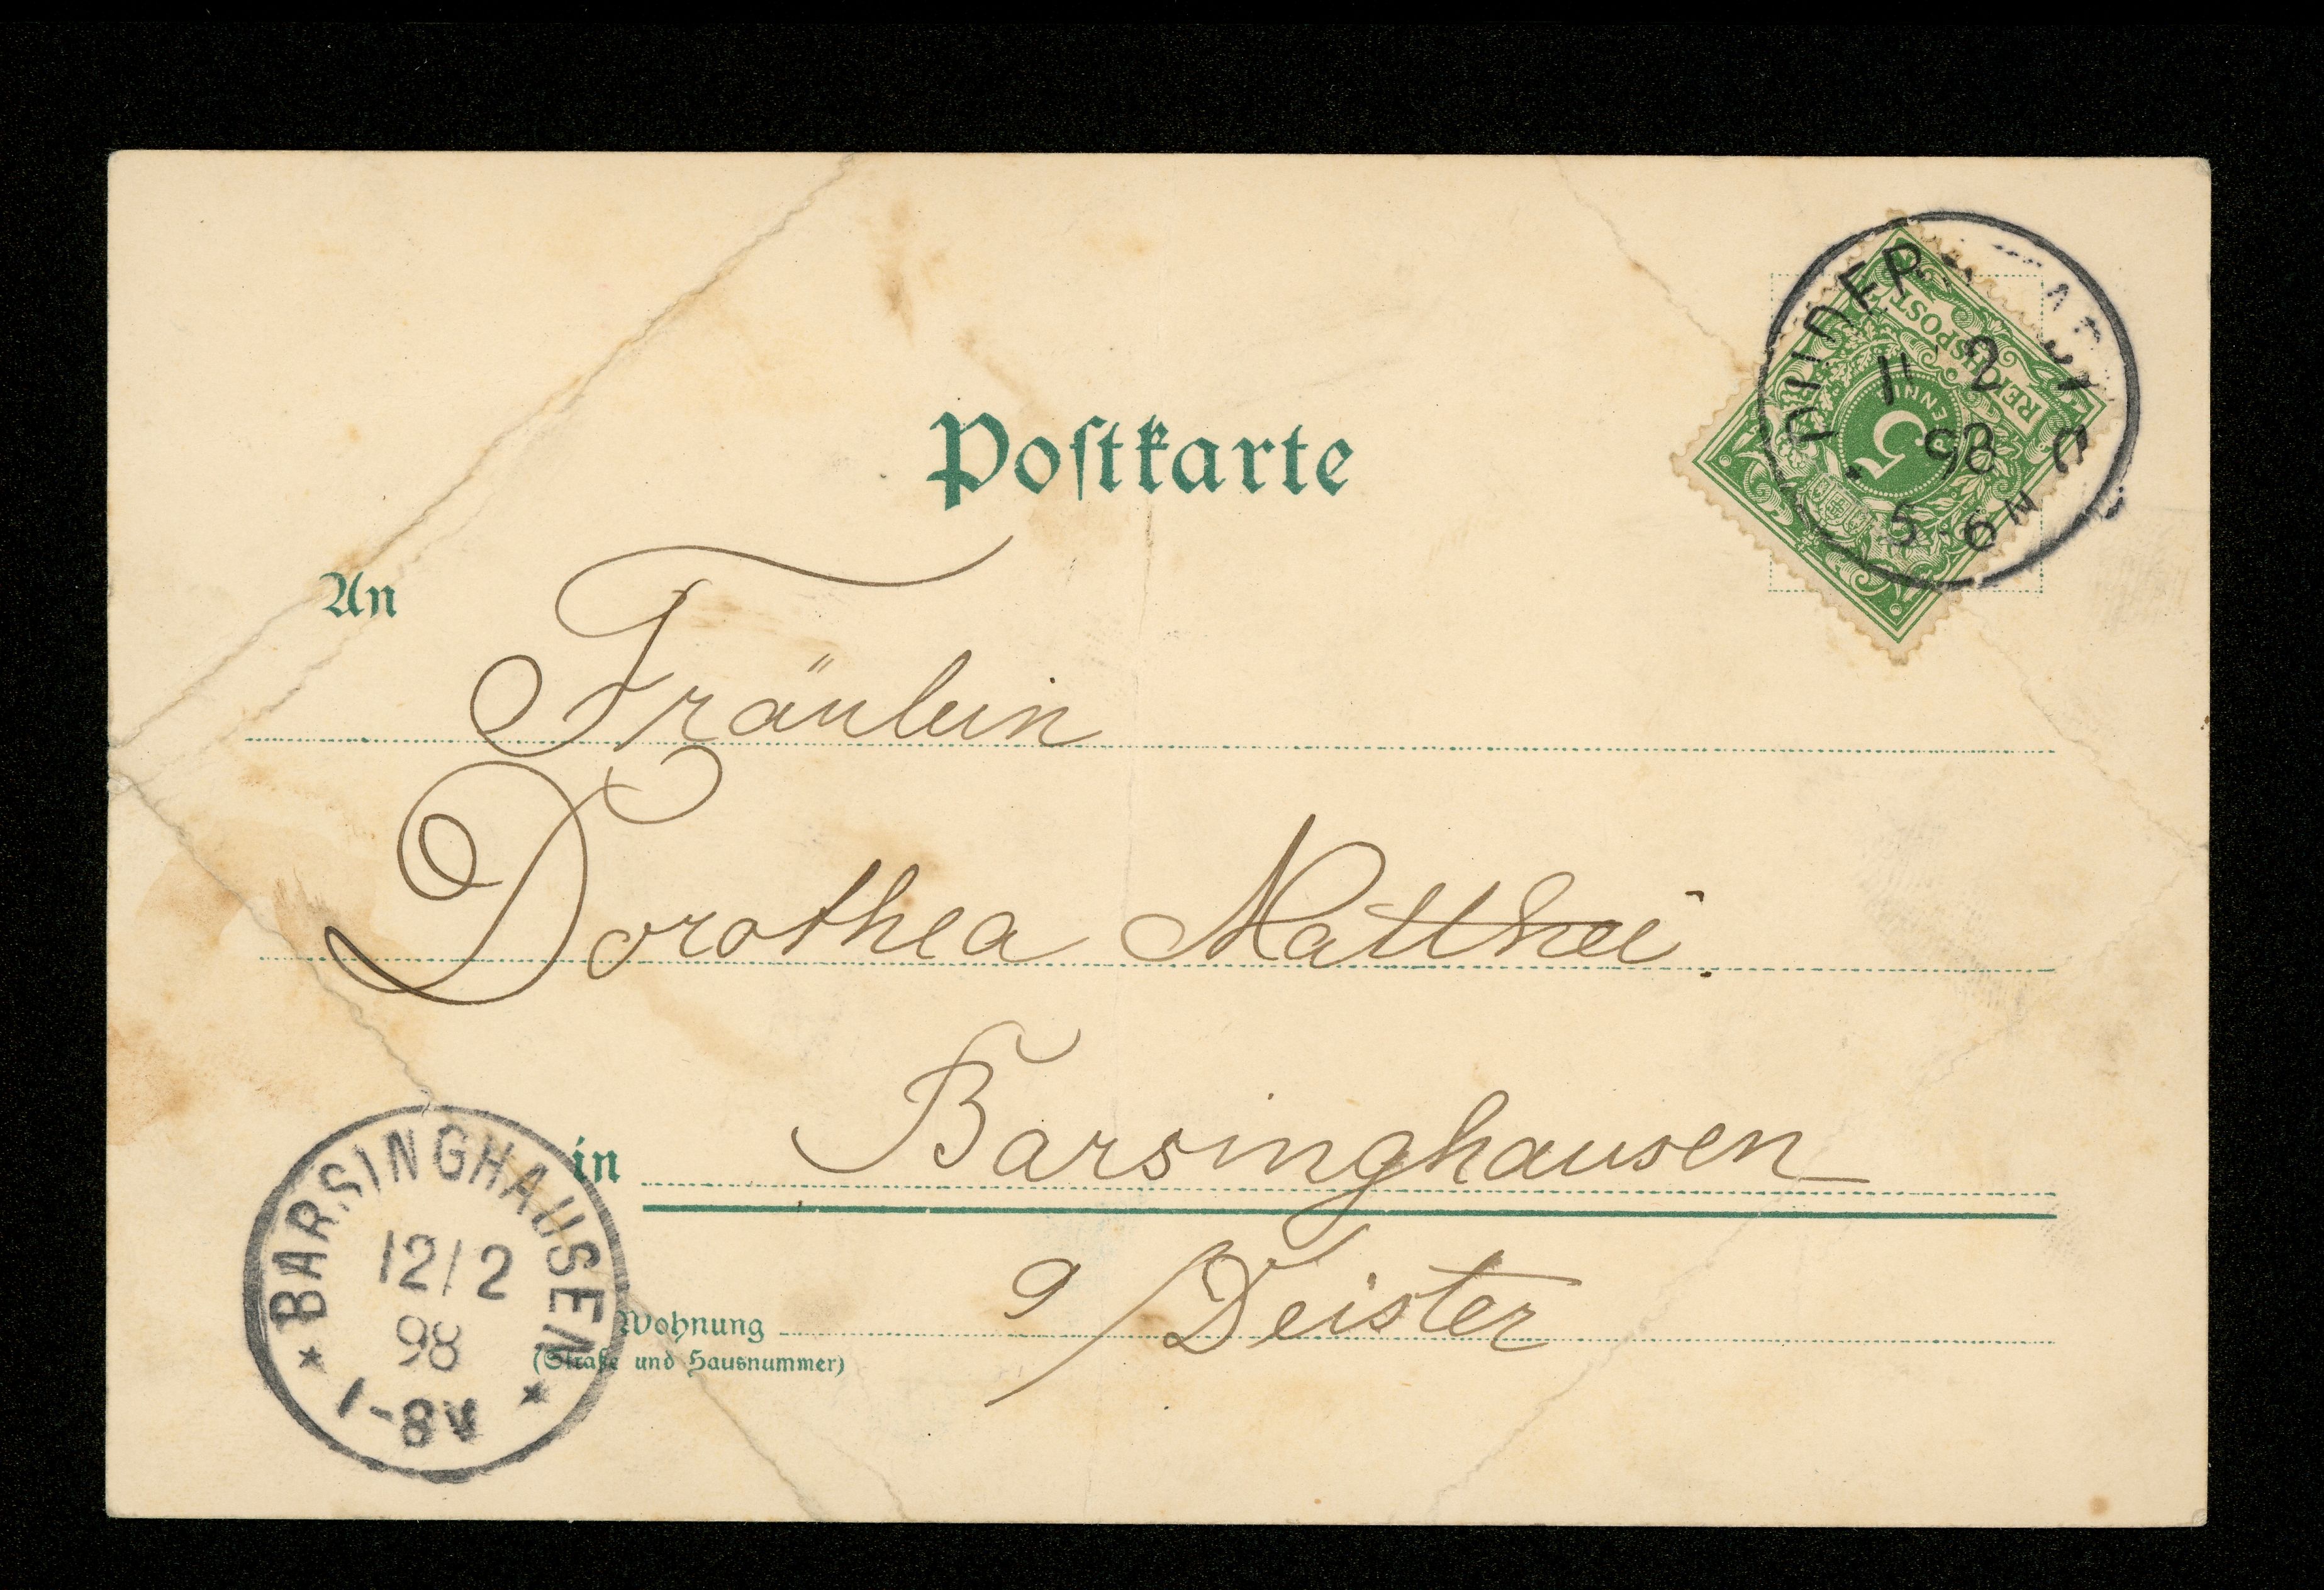 Postkarte
REICHSPOST
5
PFENNIG
11 2
98
5-6N
An
Fräulein
Dorothea Matthaei.
in Barsinghausen
a/Deister
Wohnung
(Straße und Hausnummer)
BARSINGHAUSEN
12/2
98
1-8V